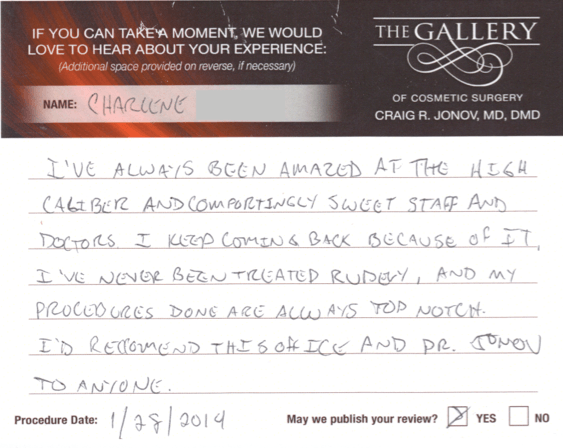 IF YOU CAN TAKE A MOMENT, WE WOULD
LOVE TO HEAR ABOUT YOUR EXPERIENCE:
(Additional space provided on reverse, if necessary)
NAME: CHARLENE
THE GALLERY
OF COSMETIC SURGERY
CRAIG R. JONOV, MD, DMD
I'VE ALWAYS BEEN AMAZED AT THE HIGH
CALIBER AND COMFORTINGLY SWEET STAFF AND
DOCTORS. I KEEP COMING BACK BECAUSE OF IT,
I'VE NEVER BEEN TREATED RUDELY, AND MY
PROCEDURES DONE ARE ALWAYS TOP NOTCH.
I'D RECOMEND THIS OFFICE AND DR. JONOV
TO ANYONE.
Procedure Date: 1/28/2014 May we publish your review? YES NO